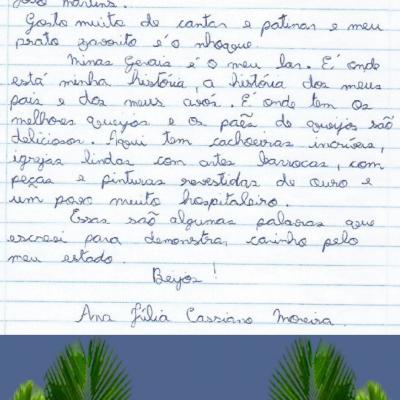 João Martins.
Gosto muito de cantar e patinar e meu
prato favorito é o nhoque.
Minas Gerais é o meu lar. É onde
está minha história, a história dos meus
pais e dos meus avós. É onde tem os
melhores queijos e os pães de queijos são
deliciosos. Aqui tem cachoeiras incríveis,
igrejas lindas com artes barrocas, com
peças e pinturas revestidas de ouro e
um povo muito hospitaleiro.
Essas são algumas palavras que
escrevi para demonstra, carinho pelo
meu estado.
Beijos!
Ana Júlia Cassiano Moreira.